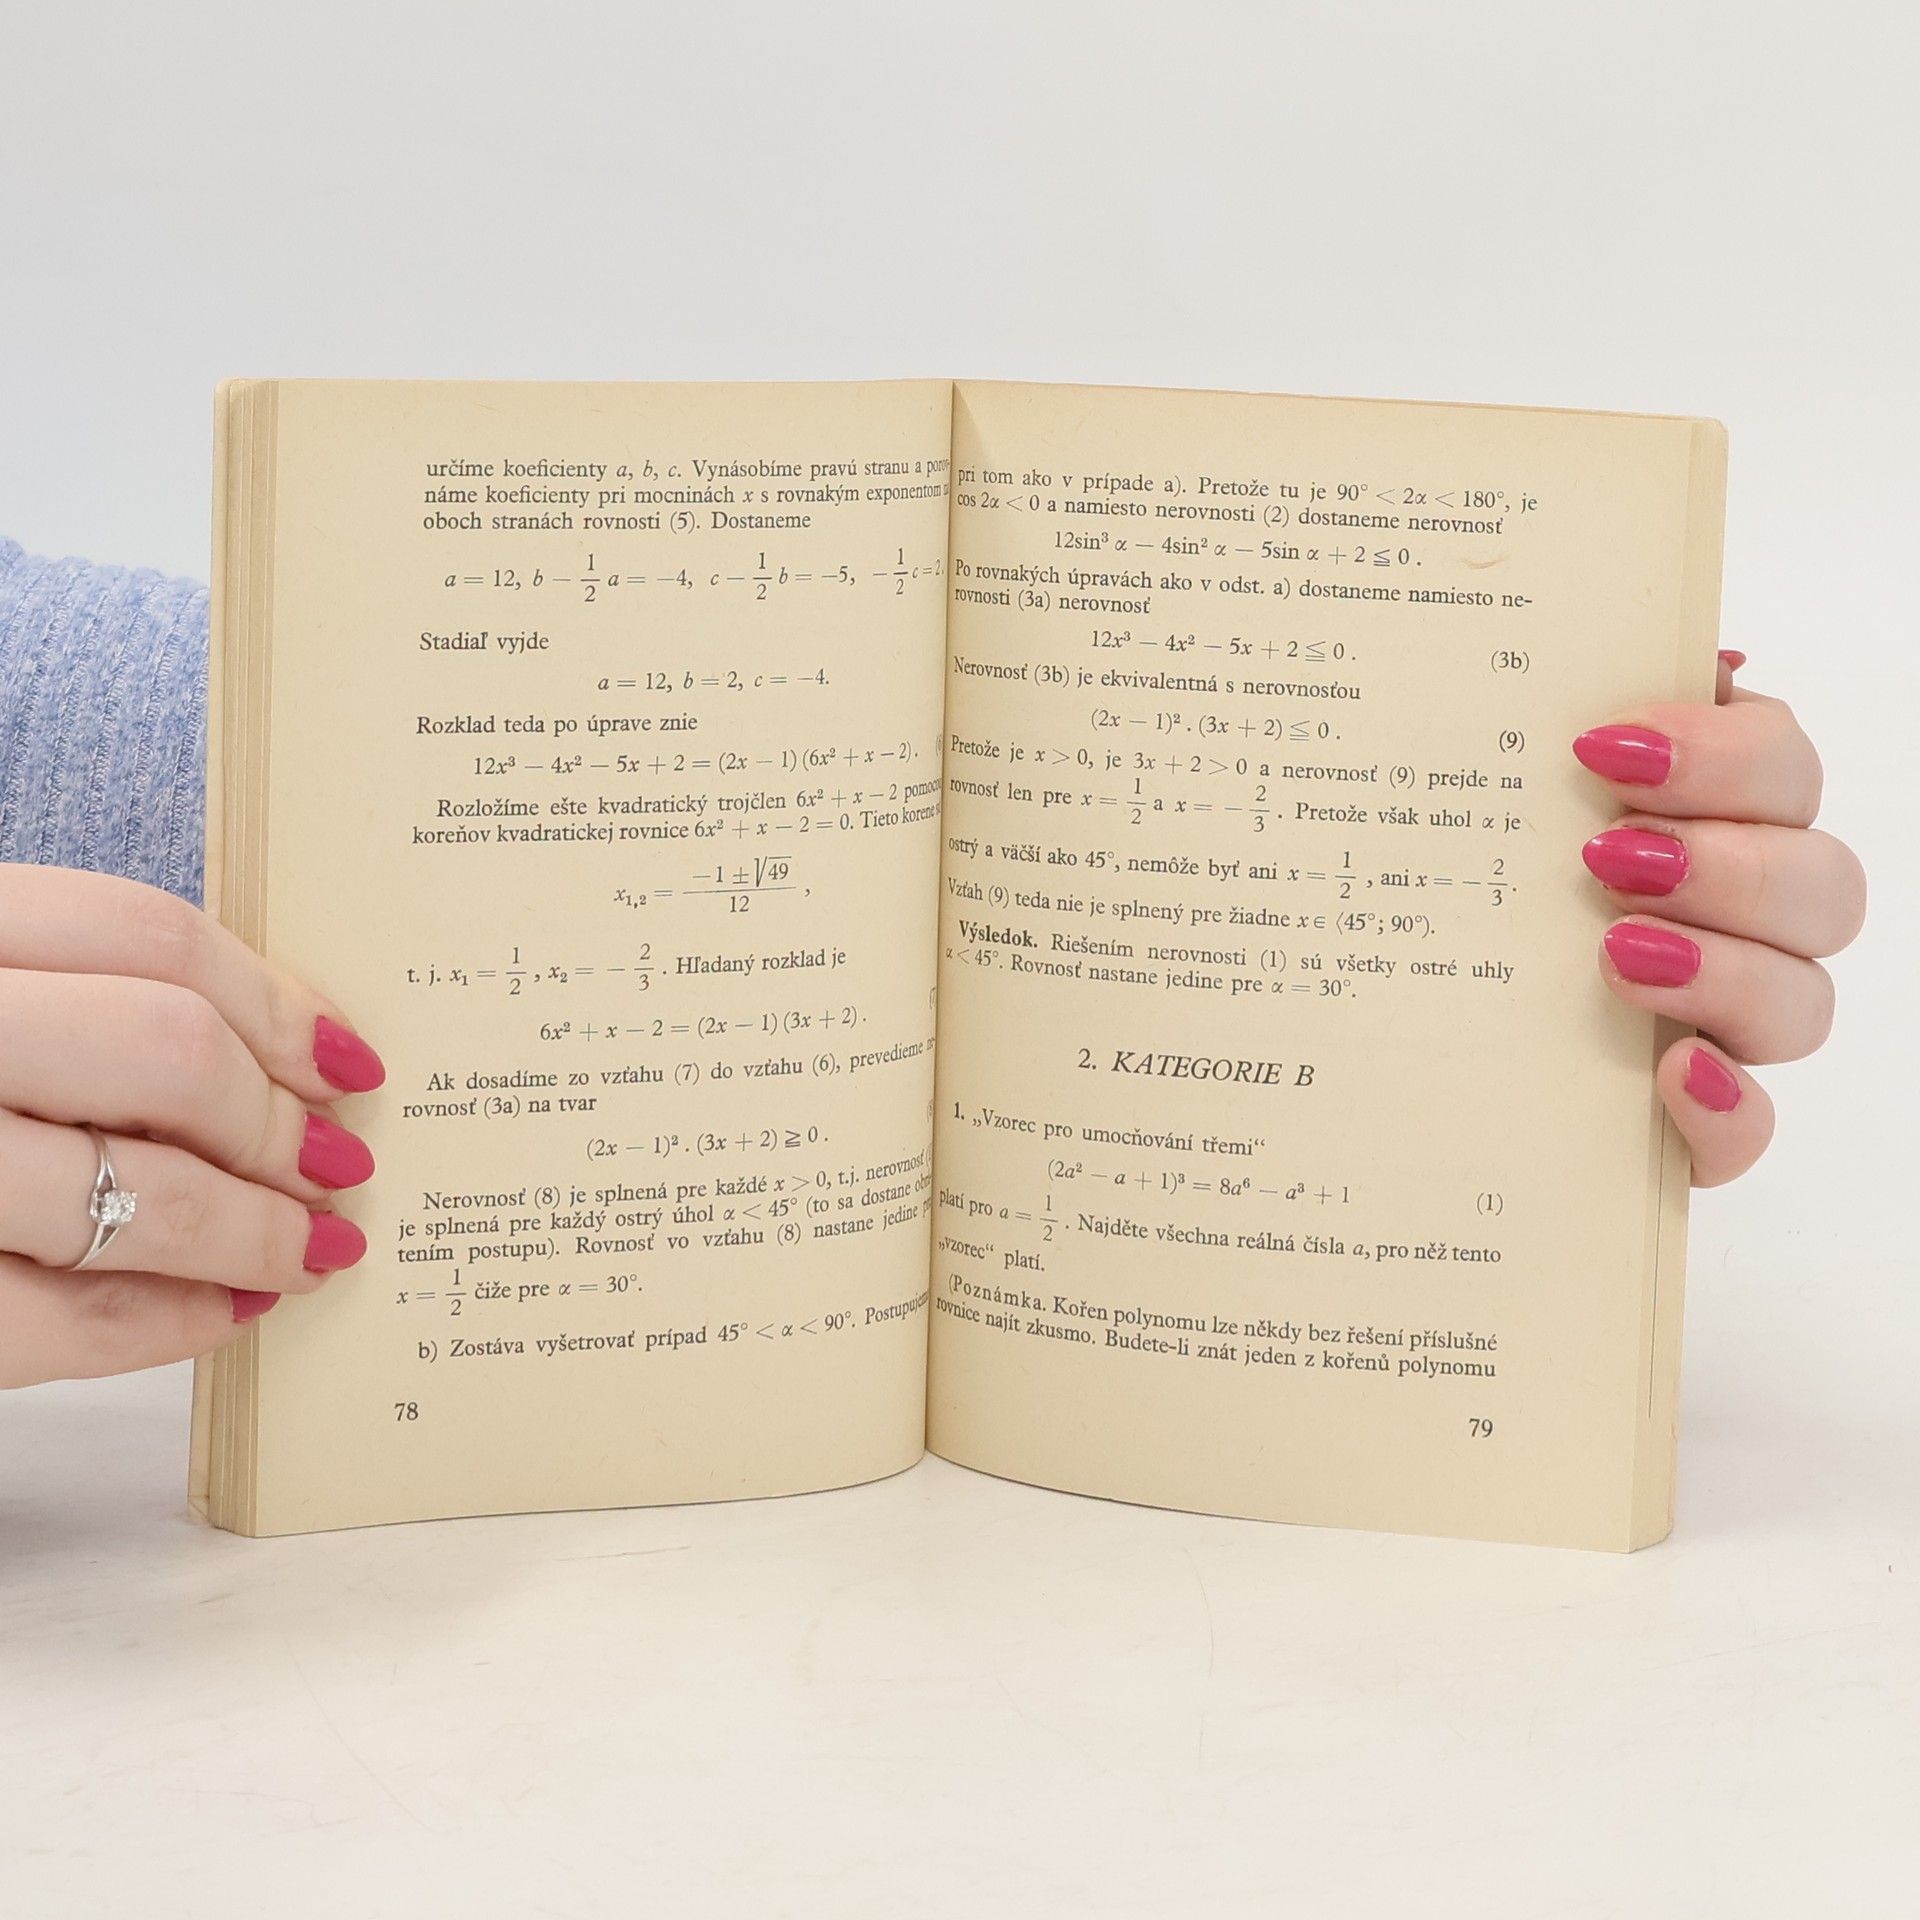 určíme koeficienty a, b, c. Vynásobíme pravú stranu a
náme koeficienty pri mocninách x s rovnakým exponentom
oboch stranách rovnosti (5). Dostaneme
a = 12, b − 1/2 a = −4, c − 1/2 b = −5, − 1/2 c = 2.
Stadiaľ vyjde
a = 12, b = 2, c = −4.
Rozklad teda po úprave znie
12x³ − 4x² − 5x + 2 = (2x − 1) (6x² + x − 2).
Rozložíme ešte kvadratický trojčlen 6x² + x − 2
koreňov kvadratickej rovnice 6x² + x − 2 = 0. Tieto korene
x₁,₂ = (−1 ± √49)/12 ,
t. j. x₁ = 1/2 , x₂ = − 2/3 . Hľadaný rozklad je
6x² + x − 2 = (2x − 1) (3x + 2) .
Ak dosadíme zo vzťahu (7) do vzťahu (6), prevedieme
rovnosť (3a) na tvar
(2x − 1)² . (3x + 2) ≧ 0 .
Nerovnosť (8) je splnená pre každé x > 0, t.j. nerovnosť
je splnená pre každý ostrý úhol α < 45° (to sa dostane
tením postupu). Rovnosť vo vzťahu (8) nastane jedine
x = 1/2 čiže pre α = 30°.
b) Zostáva vyšetrovať prípad 45° < α < 90°. Postupujeme
78
pri tom ako v prípade a). Pretože tu je 90° < 2α < 180°, je
cos 2α < 0 a namiesto nerovnosti (2) dostaneme nerovnosť
12sin³ α − 4sin² α − 5sin α + 2 ≦ 0 .
Po rovnakých úpravách ako v odst. a) dostaneme namiesto ne-
rovnosti (3a) nerovnosť
12x³ − 4x² − 5x + 2 ≦ 0 . (3b)
Nerovnosť (3b) je ekvivalentná s nerovnosťou
(2x − 1)² . (3x + 2) ≦ 0 . (9)
Pretože je x > 0, je 3x + 2 > 0 a nerovnosť (9) prejde na
rovnosť len pre x = 1/2 a x = − 2/3 . Pretože však uhol α je
ostrý a väčší ako 45°, nemôže byť ani x = 1/2 , ani x = − 2/3.
Vzťah (9) teda nie je splnený pre žiadne x ∈ ⟨45° ; 90°).
Výsledok. Riešením nerovnosti (1) sú všetky ostré uhly
α < 45°. Rovnosť nastane jedine pre α = 30°.
2. KATEGORIE B
1. „Vzorec pro umocňování třemi“
(2a² − a + 1)³ = 8a⁶ − a³ + 1 (1)
platí pro a = 1/2 . Najděte všechna reálná čísla a, pro něž tento
„vzorec“ platí.
(Poznámka. Kořen polynomu lze někdy bez řešení příslušné
rovnice najít zkusmo. Budete-li znát jeden z kořenů polynomu
79